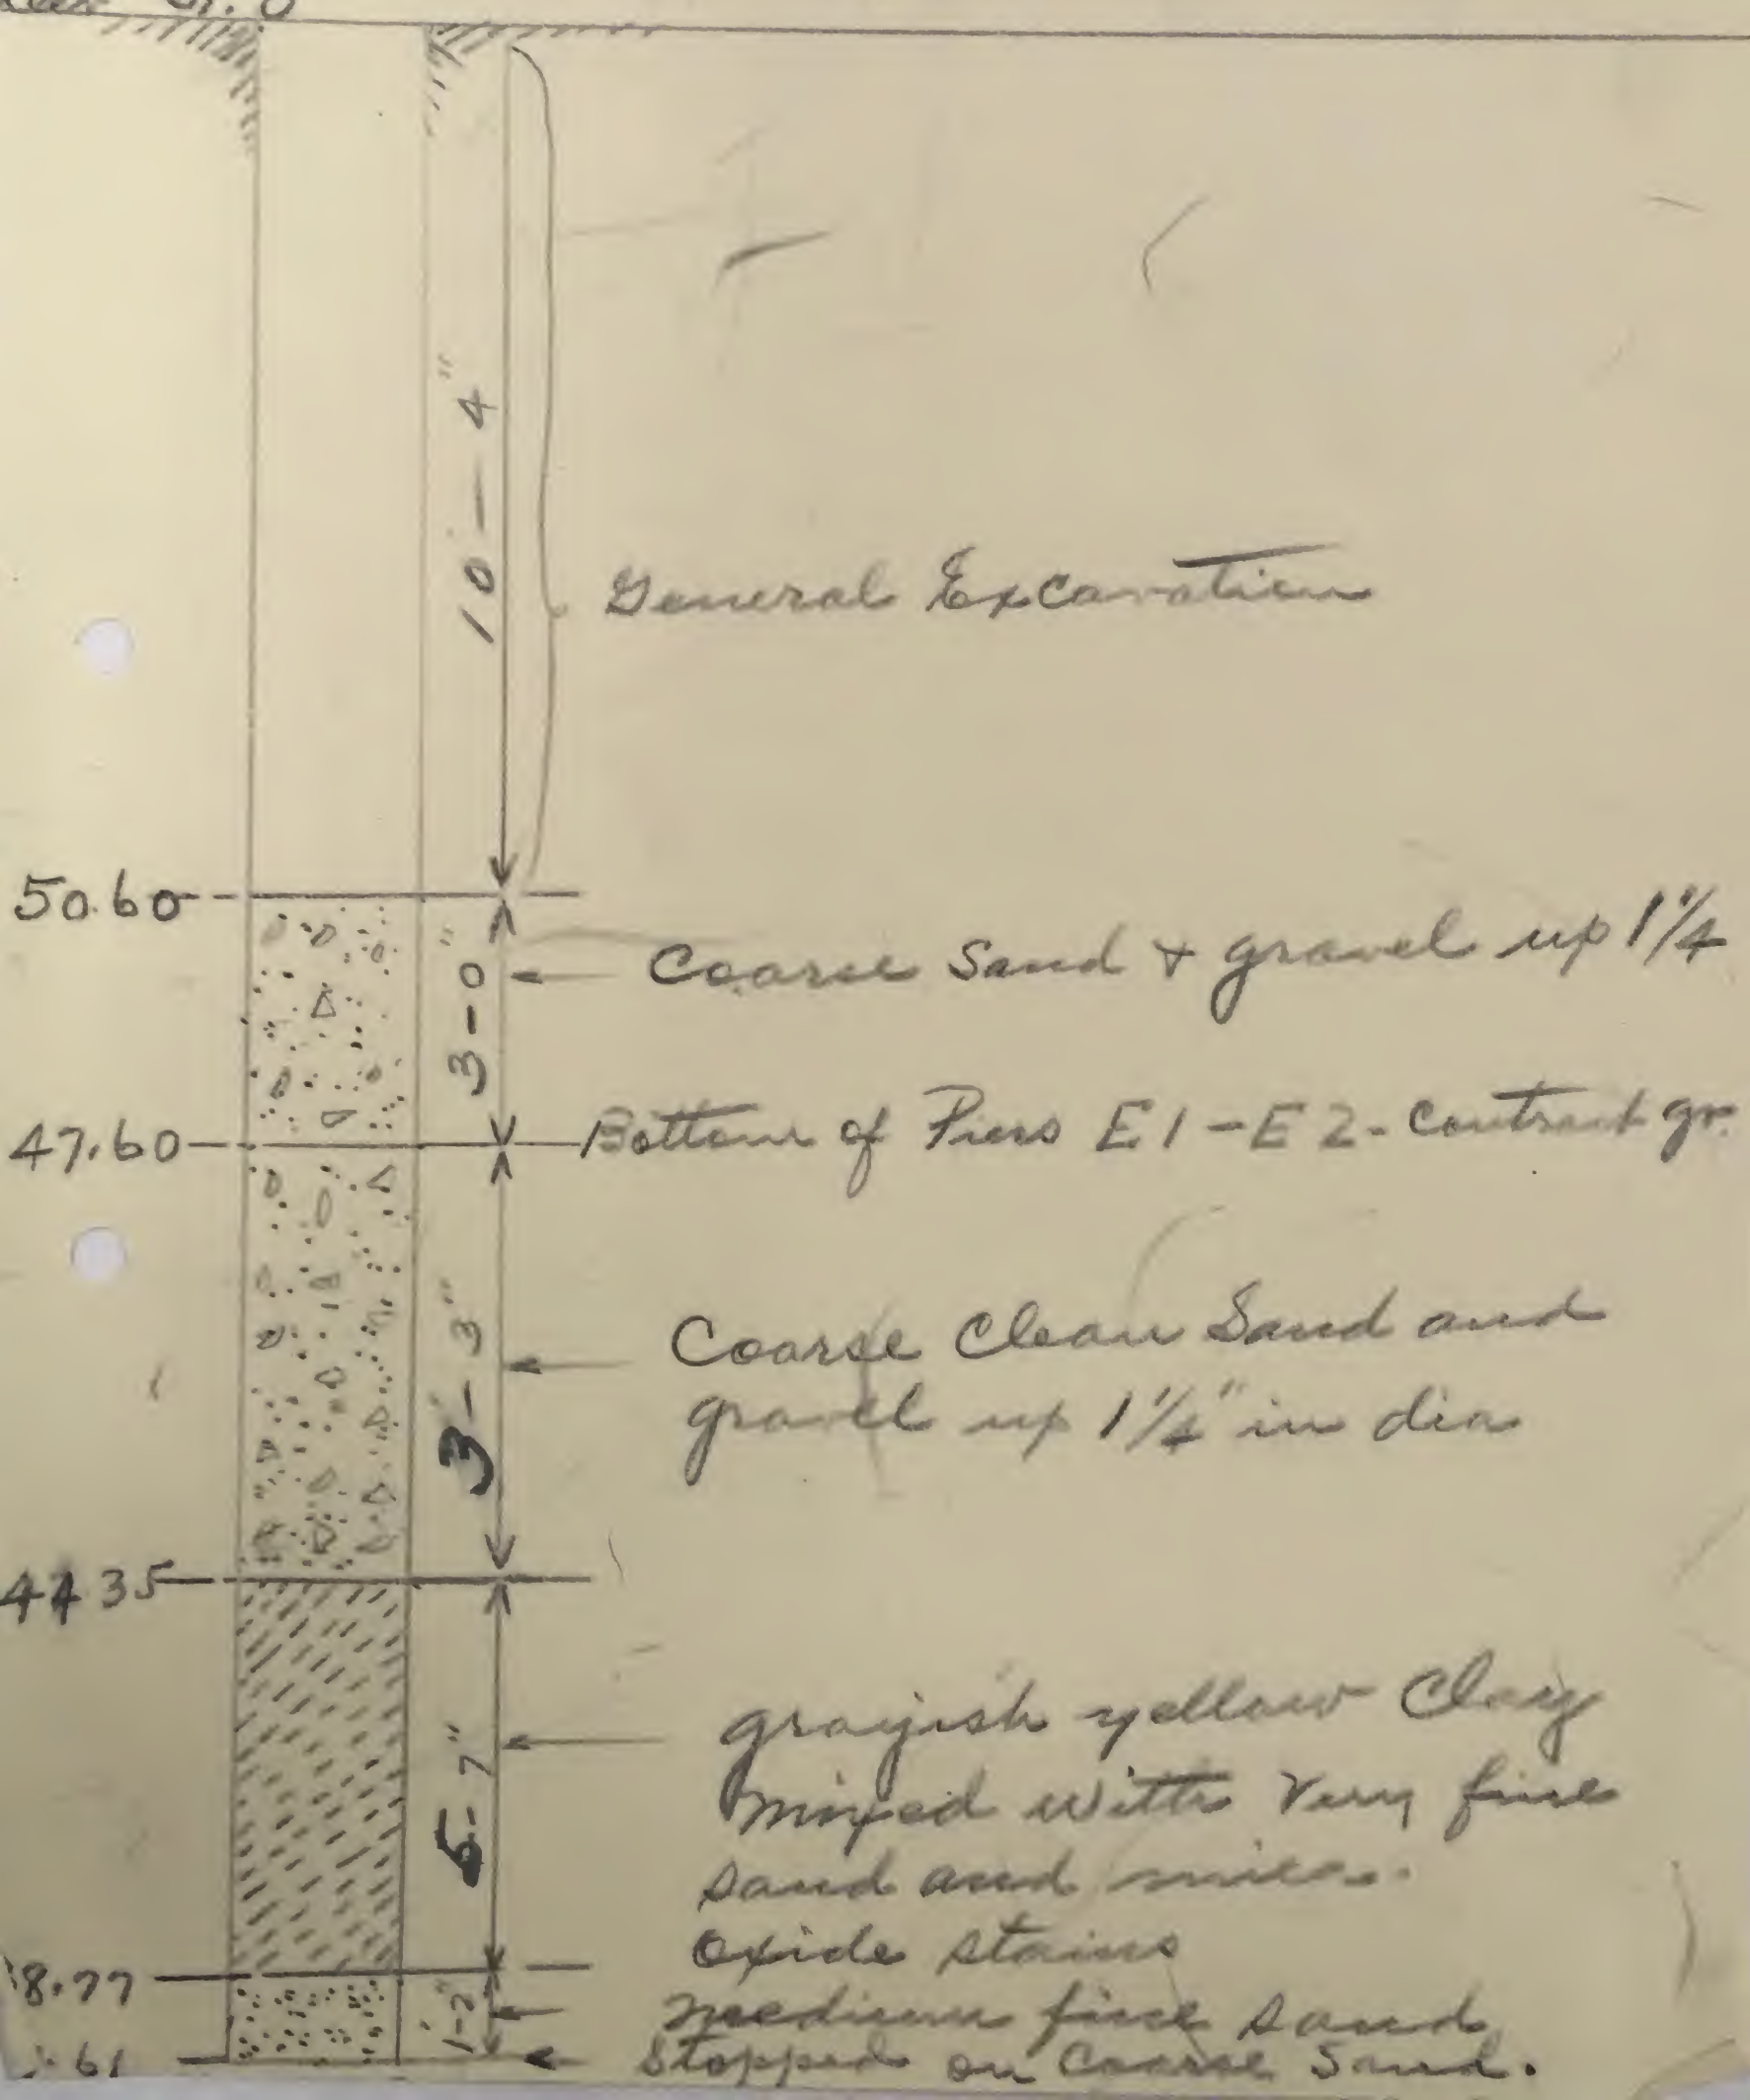 10-4"
General Excavation
50.60
3-0"
Coarse Sand & gravel up 1 1/4"
47.60
Bottom of Piers E1-E2- Contract gr.
3-3"
Coarse Clean Sand and
gravel up 1 1/4" in dia
44.35
5-7"
grayish yellow Clay
mixed with Very fine
sand and mica.
Oxide stains
8.77
1-2"
medium fine sand
61
Stopped on Coarse Sand.